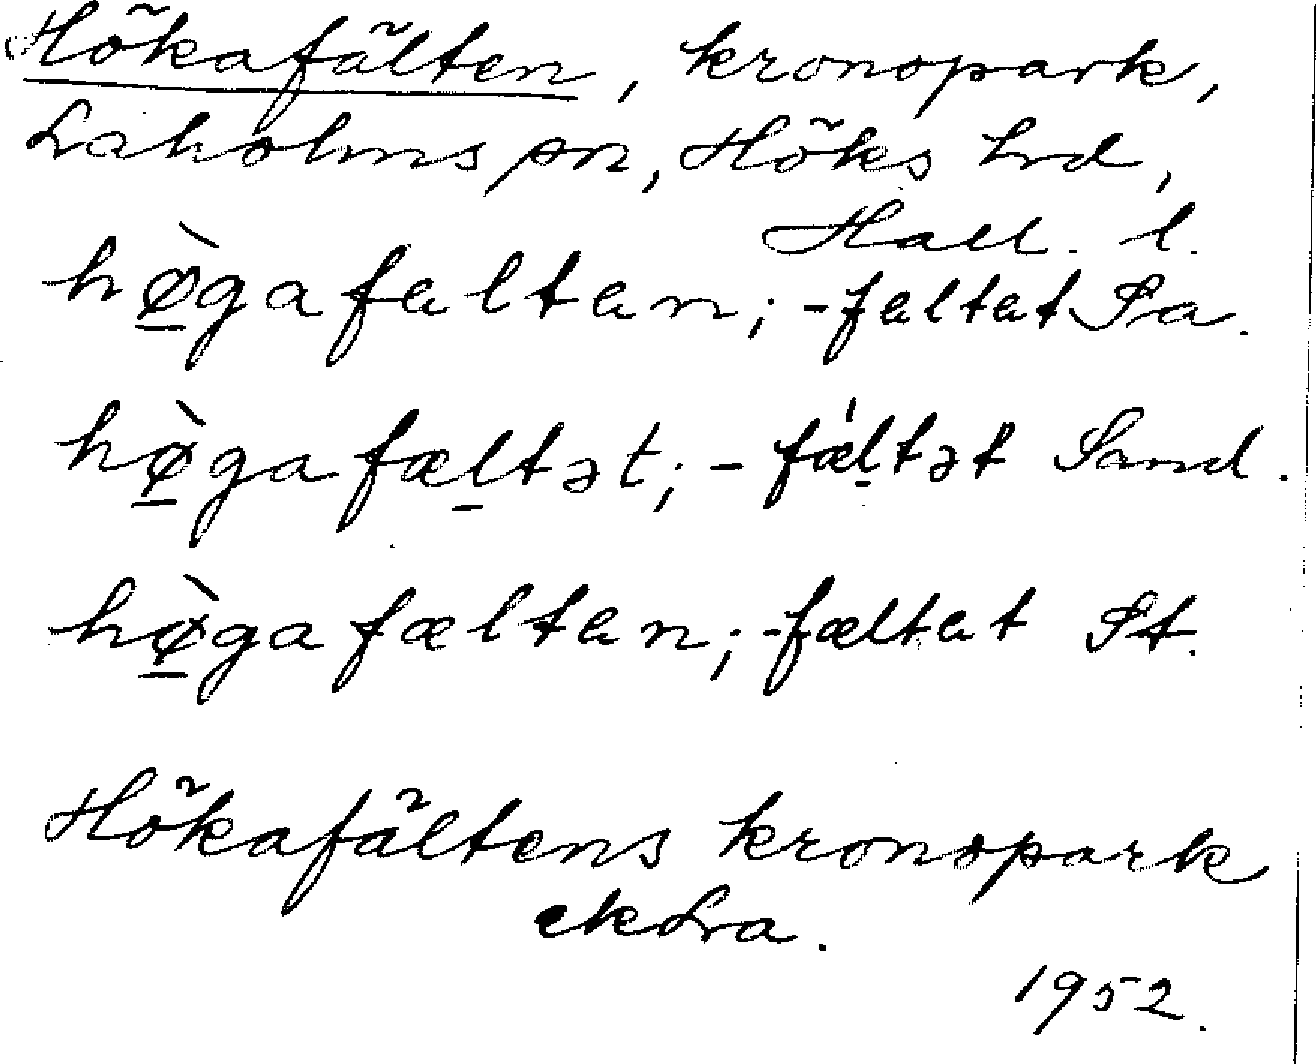 Hökafälten, kronopark,
Laholms sn, Höks hd,
Hall. l.
hø̲̀gafaltan; -faltat Sa.
hø̲̀gafæl̲tət; -fæ̍l̲tət Sand.
hø̲̀gafæltan; -fæltat St.
Hökafältens kronopark
1952.